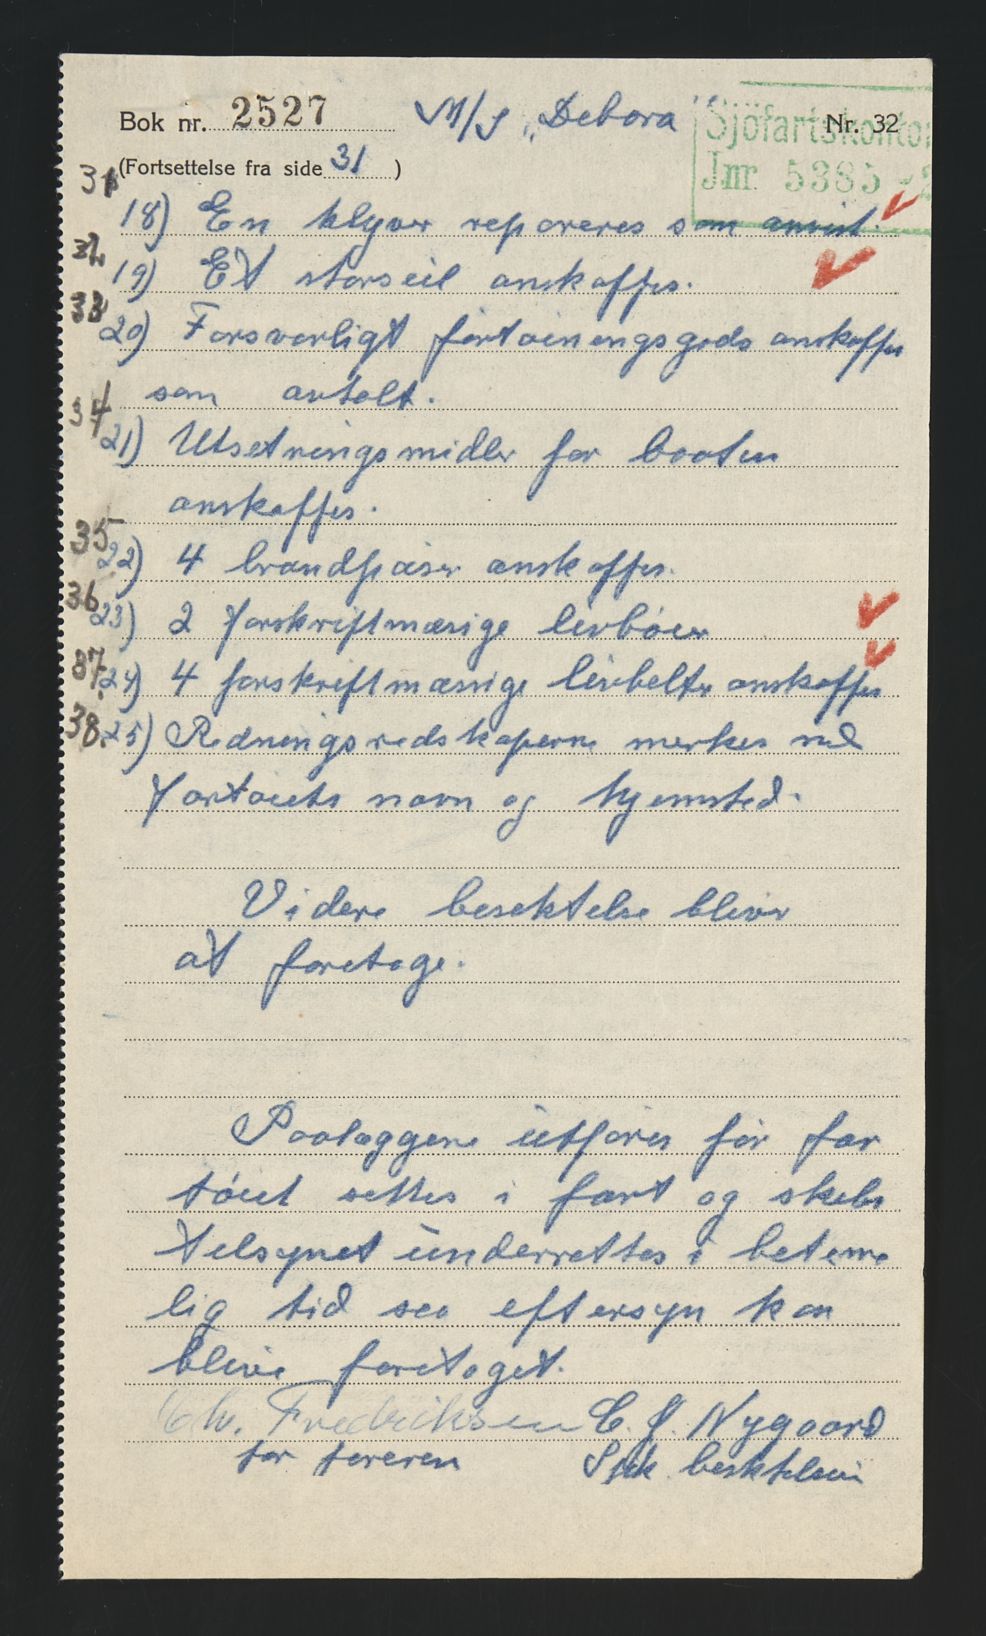 Bok nr. 2527 M/S „Debora" Nr. 32
Sjöfartskontor
(Fortsettelse fra side 31)
Jnr 5385 - 2
31 18) En klyver repareres som anvist.
32 19) Et storseil anskaffes.
33 20) Forsvarligt fortøiningsgods anskaffes
som avtalt.
34 21) Utsetningsmidler for baaten
anskaffes.
35 22) 4 brandpøser anskaffes.
36 23) 2 forskriftmæsige livbøier
37. 24) 4 forskriftmæssige livbelter anskaffes
38. 25) Redningsredskaperne merkes med
fartøiets navn og hjemsted.
Videre besektelse bliver
at foretage.
Paalæggene utføres før far
tøiet settes i fart og skibs
tilsynet underrettes i betime
lig tid saa eftersyn kan
blive foretaget.
Chr. Fredriksen C. J. Nygaard
for føreren